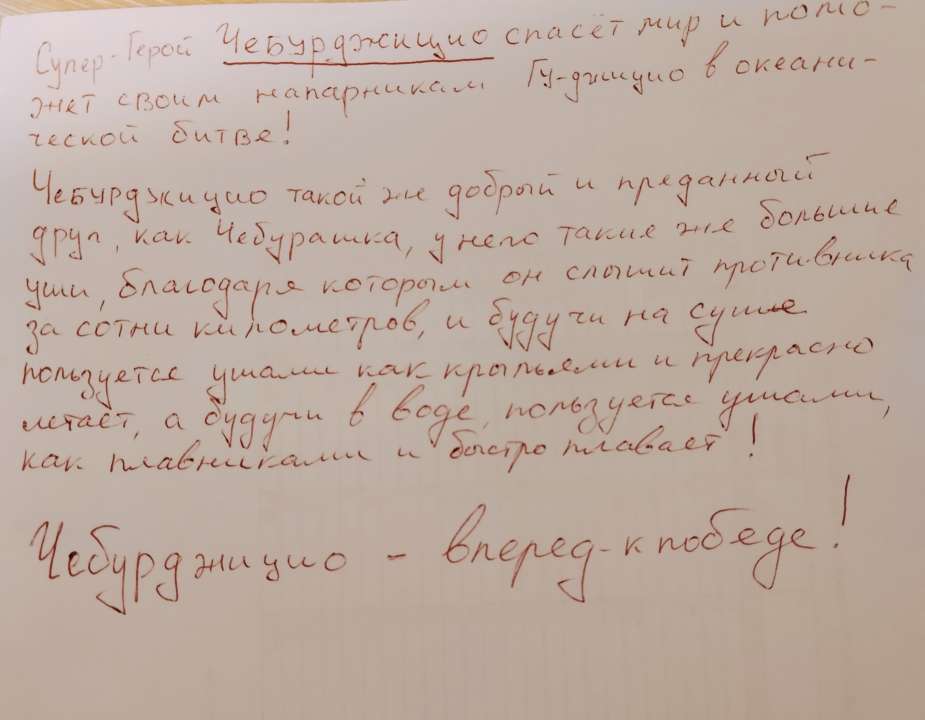 Супер-Герой Чебурджицио спасёт мир и помо-
жет своим напарникам Гу-джицио в океани-
ческой битве!
Чебурджицио такой же добрый и преданный
друг, как Чебурашка, у него такие же большие
уши, благодаря которым он слышит противника
за сотни километров, и будучи на суше
пользуется ушами как крыльями и прекрасно
летает, а будучи в воде, пользуется ушами,
как плавниками и быстро плавает!
Чебурджицио - вперед - к победе!